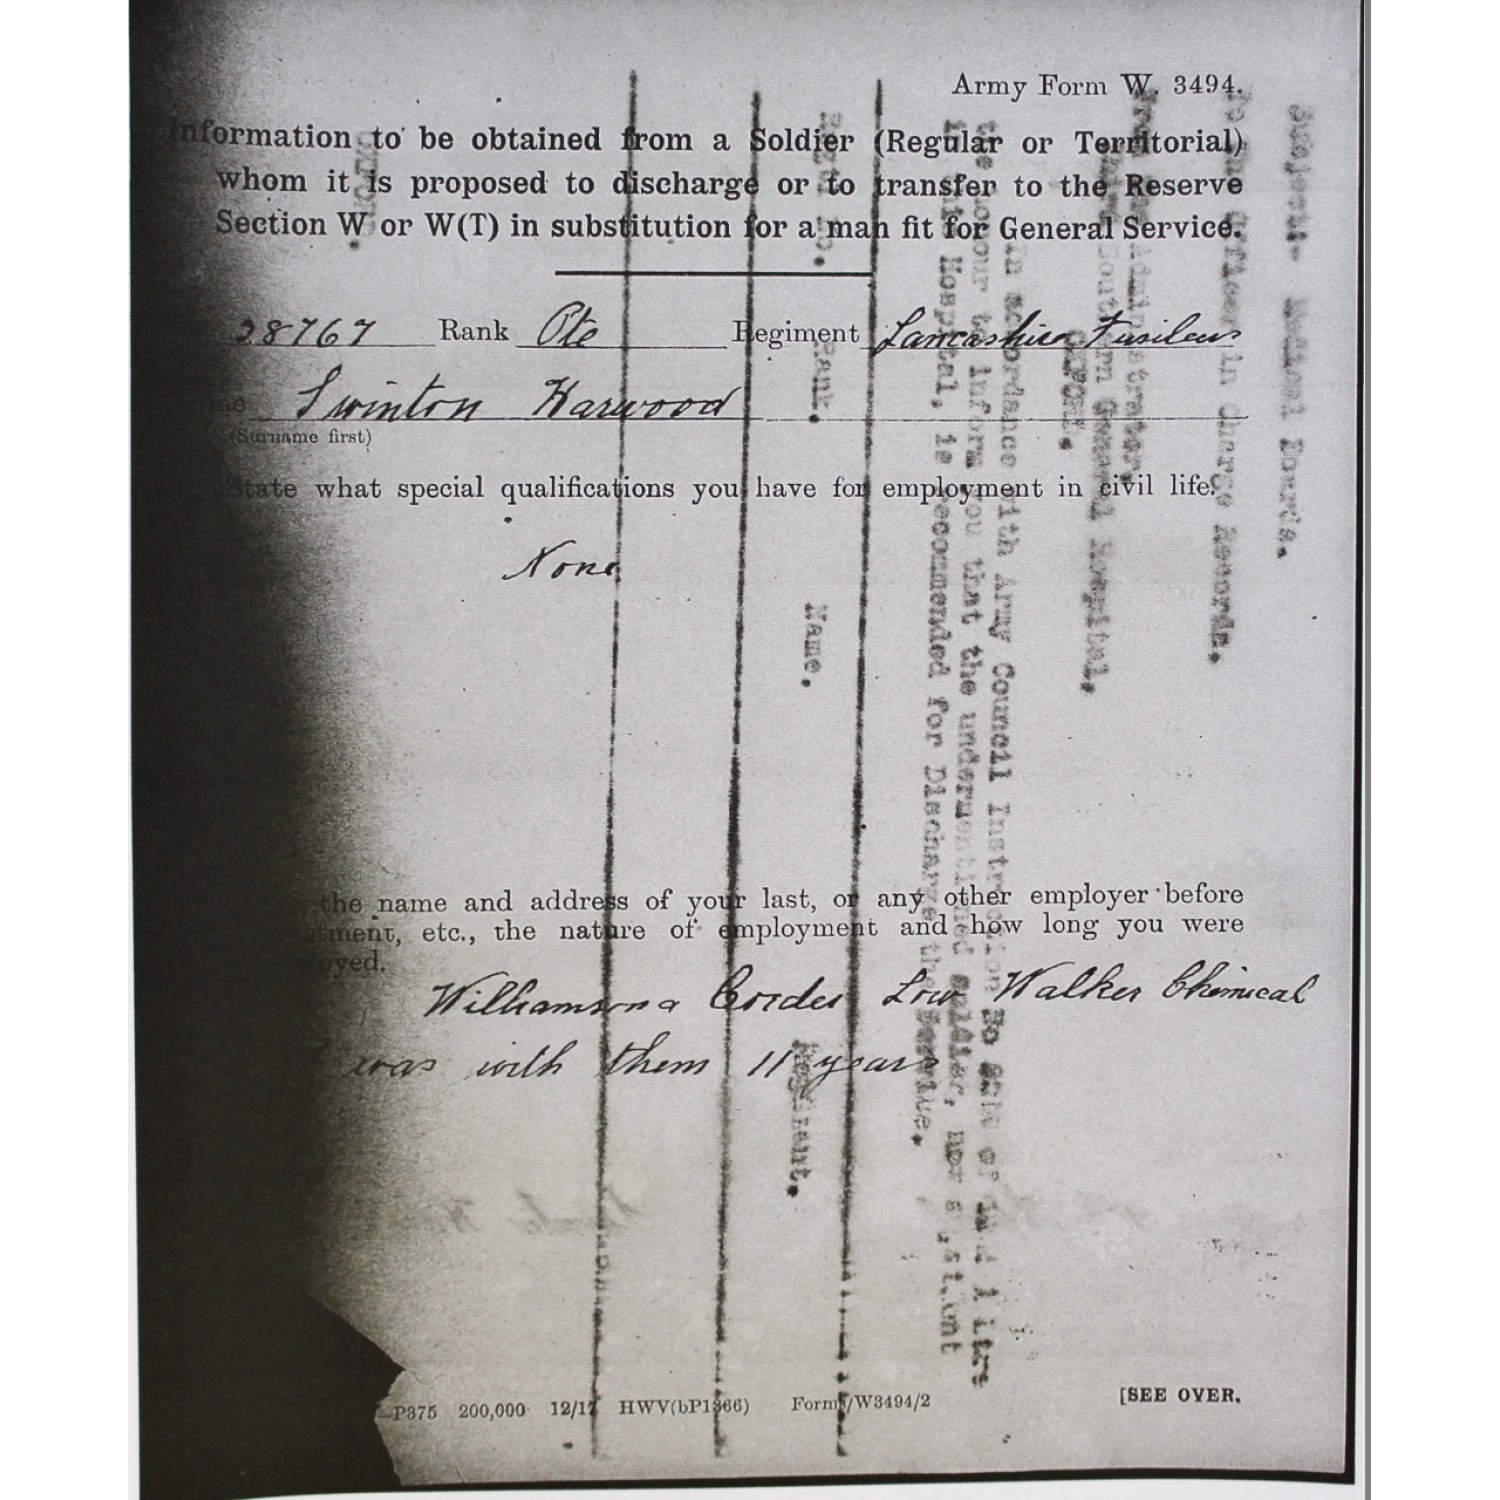 Army Form W. 3494.
Information to be obtained from a Soldier (Regular or Territorial)
whom it is proposed to discharge or to transfer to the Reserve
Section W or W(T) in substitution for a man fit for General Service.
38767 Rank Pte Regiment Lancashire Fusiliers
Swinton Harwood
(Surname first)
State what special qualifications you have for employment in civil life.
None
the name and address of your last, or any other employer before
etc., the nature of employment and how long you were
Williamson & Corder Low Walker Chemical
was with them 11 years
P375 200,000 12/17 HWV(bP1366) Forms/W3494/2
[SEE OVER.
Subject:- Medical Boards.
Officer in Charge Records.
Southern General Hospital,
in accordance with Army Council Instruction No
inform you that the undermentioned Soldier, now a patient
Hospital, is recommended for Discharge the Service.
Rank. Name. Regiment.